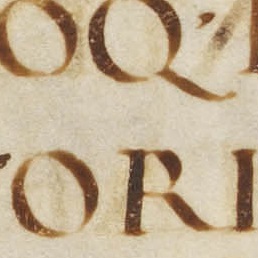 OQ·
ORI